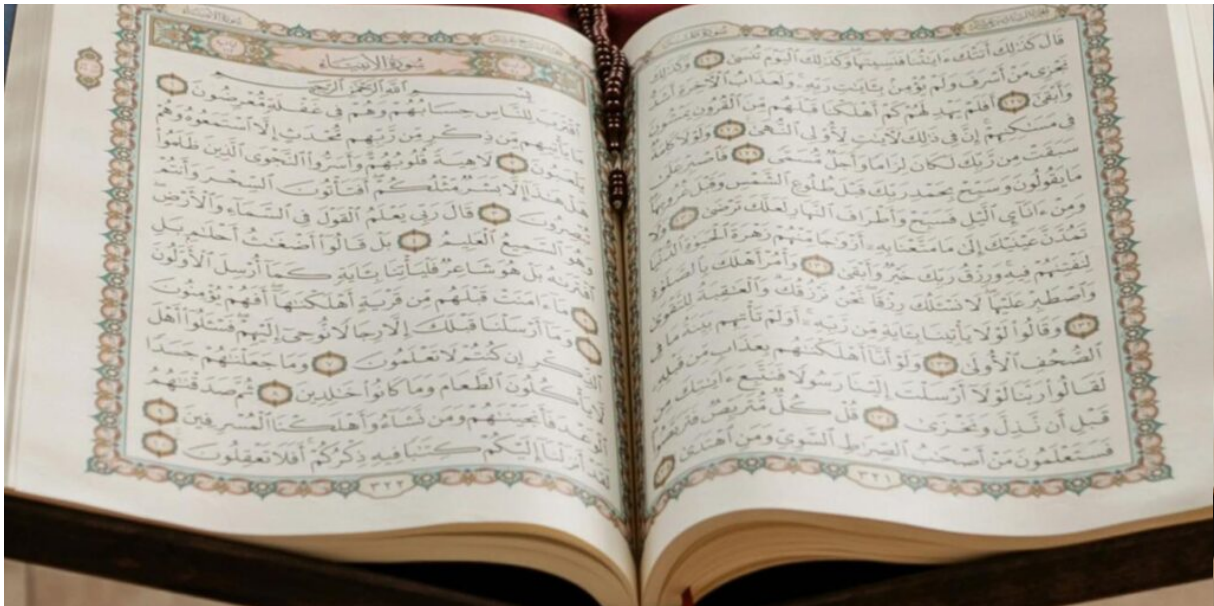 سُورَةُ طه
قَالَ كَذَٰلِكَ أَتَتْكَ ءَايَٰتُنَا فَنَسِيتَهَا وَكَذَٰلِكَ ٱلْيَوْمَ تُنسَىٰ ١٢٦ وَكَذَٰلِكَ
نَجْزِي مَنْ أَسْرَفَ وَلَمْ يُؤْمِنۢ بِـَٔايَٰتِ رَبِّهِۦ وَلَعَذَابُ ٱلْءَاخِرَةِ أَشَدُّ
وَأَبْقَىٰٓ ١٢٧ أَفَلَمْ يَهْدِ لَهُمْ كَمْ أَهْلَكْنَا قَبْلَهُم مِّنَ ٱلْقُرُونِ يَمْشُونَ
فِي مَسَٰكِنِهِمْ إِنَّ فِي ذَٰلِكَ لَءَايَٰتٍ لِّأُو۟لِي ٱلنُّهَىٰ ١٢٨ وَلَوْلَا كَلِمَةٌ
سَبَقَتْ مِن رَّبِّكَ لَكَانَ لِزَامًا وَأَجَلٌ مُّسَمًّى ١٢٩ فَٱصْبِرْ عَلَىٰ
مَا يَقُولُونَ وَسَبِّحْ بِحَمْدِ رَبِّكَ قَبْلَ طُلُوعِ ٱلشَّمْسِ وَقَبْلَ غُرُوبِهَا
وَمِنْ ءَانَآيِٕ ٱلَّيْلِ فَسَبِّحْ وَأَطْرَافَ ٱلنَّهَارِ لَعَلَّكَ تَرْضَىٰ ١٣٠ وَلَا
تَمُدَّنَّ عَيْنَيْكَ إِلَىٰ مَا مَتَّعْنَا بِهِۦٓ أَزْوَٰجًا مِّنْهُمْ زَهْرَةَ ٱلْحَيَوٰةِ ٱلدُّنْيَا
لِنَفْتِنَهُمْ فِيهِ وَرِزْقُ رَبِّكَ خَيْرٌ وَأَبْقَىٰ ١٣١ وَأْمُرْ أَهْلَكَ بِٱلصَّلَوٰةِ
وَٱصْطَبِرْ عَلَيْهَا لَا نَسْـَٔلُكَ رِزْقًا نَّحْنُ نَرْزُقُكَ وَٱلْعَٰقِبَةُ لِلتَّقْوَىٰ
١٣٢ وَقَالُوا۟ لَوْلَا يَأْتِينَا بِـَٔايَةٍ مِّن رَّبِّهِۦٓ أَوَلَمْ تَأْتِهِم بَيِّنَةُ مَا فِي
ٱلصُّحُفِ ٱلْأُولَىٰ ١٣٣ وَلَوْ أَنَّآ أَهْلَكْنَٰهُم بِعَذَابٍ مِّن قَبْلِهِۦ
لَقَالُوا۟ رَبَّنَا لَوْلَآ أَرْسَلْتَ إِلَيْنَا رَسُولًا فَنَتَّبِعَ ءَايَٰتِكَ مِن
قَبْلِ أَن نَّذِلَّ وَنَخْزَىٰ ١٣٤ قُلْ كُلٌّ مُّتَرَبِّصٌ فَتَرَبَّصُوا۟
فَسَتَعْلَمُونَ مَنْ أَصْحَٰبُ ٱلصِّرَٰطِ ٱلسَّوِيِّ وَمَنِ ٱهْتَدَىٰ ١٣٥
٣٢١
سُورَةُ الأَنبِيَاءِ
سُورَةُ الأَنبِيَاءِ
بِسْمِ ٱللَّهِ ٱلرَّحْمَٰنِ ٱلرَّحِيمِ
ٱقْتَرَبَ لِلنَّاسِ حِسَابُهُمْ وَهُمْ فِي غَفْلَةٍ مُّعْرِضُونَ ١
مَا يَأْتِيهِم مِّن ذِكْرٍ مِّن رَّبِّهِم مُّحْدَثٍ إِلَّا ٱسْتَمَعُوهُ وَهُمْ
يَلْعَبُونَ ٢ لَاهِيَةً قُلُوبُهُمْ وَأَسَرُّوا۟ ٱلنَّجْوَى ٱلَّذِينَ ظَلَمُوا۟
هَلْ هَٰذَآ إِلَّا بَشَرٌ مِّثْلُكُمْ أَفَتَأْتُونَ ٱلسِّحْرَ وَأَنتُمْ
تُبْصِرُونَ ٣ قَالَ رَبِّي يَعْلَمُ ٱلْقَوْلَ فِي ٱلسَّمَآءِ وَٱلْأَرْضِ
وَهُوَ ٱلسَّمِيعُ ٱلْعَلِيمُ ٤ بَلْ قَالُوٓا۟ أَضْغَٰثُ أَحْلَٰمٍۭ بَلِ
ٱفْتَرَىٰهُ بَلْ هُوَ شَاعِرٌ فَلْيَأْتِنَا بِـَٔايَةٍ كَمَآ أُرْسِلَ ٱلْأَوَّلُونَ
٥ مَآ ءَامَنَتْ قَبْلَهُم مِّن قَرْيَةٍ أَهْلَكْنَٰهَآ أَفَهُمْ يُؤْمِنُونَ
٦ وَمَآ أَرْسَلْنَا قَبْلَكَ إِلَّا رِجَالًا نُّوحِيٓ إِلَيْهِمْ فَسْـَٔلُوٓا۟ أَهْلَ
ٱلذِّكْرِ إِن كُنتُمْ لَا تَعْلَمُونَ ٧ وَمَا جَعَلْنَٰهُمْ جَسَدًا
لَّا يَأْكُلُونَ ٱلطَّعَامَ وَمَا كَانُوا۟ خَٰلِدِينَ ٨ ثُمَّ صَدَقْنَٰهُمُ
ٱلْوَعْدَ فَأَنجَيْنَٰهُمْ وَمَن نَّشَآءُ وَأَهْلَكْنَا ٱلْمُسْرِفِينَ ٩
لَقَدْ أَنزَلْنَآ إِلَيْكُمْ كِتَٰبًا فِيهِ ذِكْرُكُمْ أَفَلَا تَعْقِلُونَ ١٠
٣٢٢